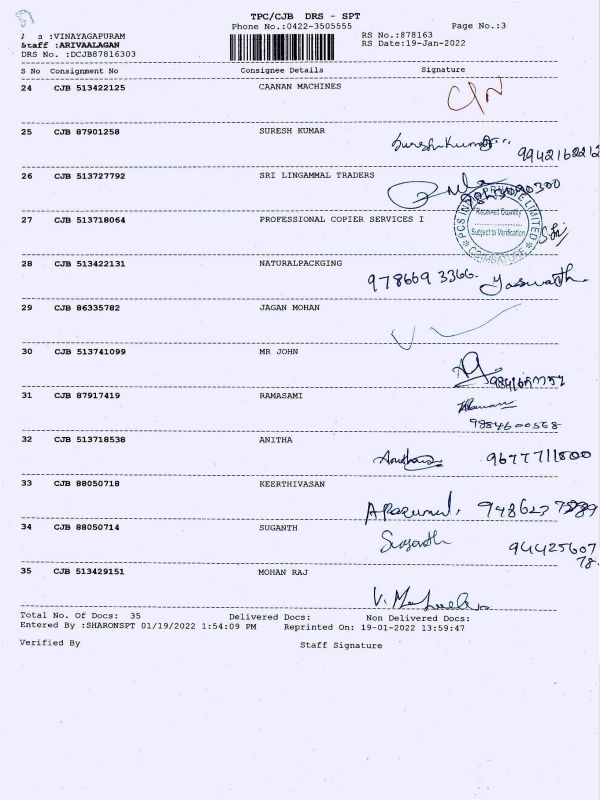 TPC/CJB DRS - SPT
Phone No.:0422-3505555
Page No.:3
a :VINAYAGAPURAM
Staff :ARIVAALAGAN
DRS No. :DCJB87816303
RS No.:878163
RS Date:19-Jan-2022
S No Consignment No Consignee Details Signature
24 CJB 513422125 CAANAN MACHINES
25 CJB 87901258 SURESH KUMAR
Sureshkumar
9942162212
26 CJB 513727792 SRI LINGAMMAL TRADERS
27 CJB 513718064 PROFESSIONAL COPIER SERVICES I
PCS IN PRIVATE LIMITED
Received Quantity
Subject to Verification
COIMBATORE
28 CJB 513422131 NATURALPACKGING
978669 3366. Yaswanth
29 CJB 86335782 JAGAN MOHAN
30 CJB 513741099 MR JOHN
31 CJB 87917419 RAMASAMI
9884600568
32 CJB 513718538 ANITHA
9677711800
33 CJB 88050718 KEERTHIVASAN
34 CJB 88050714 SUGANTH
Suganth
94425607
78.
35 CJB 513429151 MOHAN RAJ
Total No. Of Docs: 35 Delivered Docs: Non Delivered Docs:
Entered By :SHARONSPT 01/19/2022 1:54:09 PM Reprinted On: 19-01-2022 13:59:47
Verified By Staff Signature